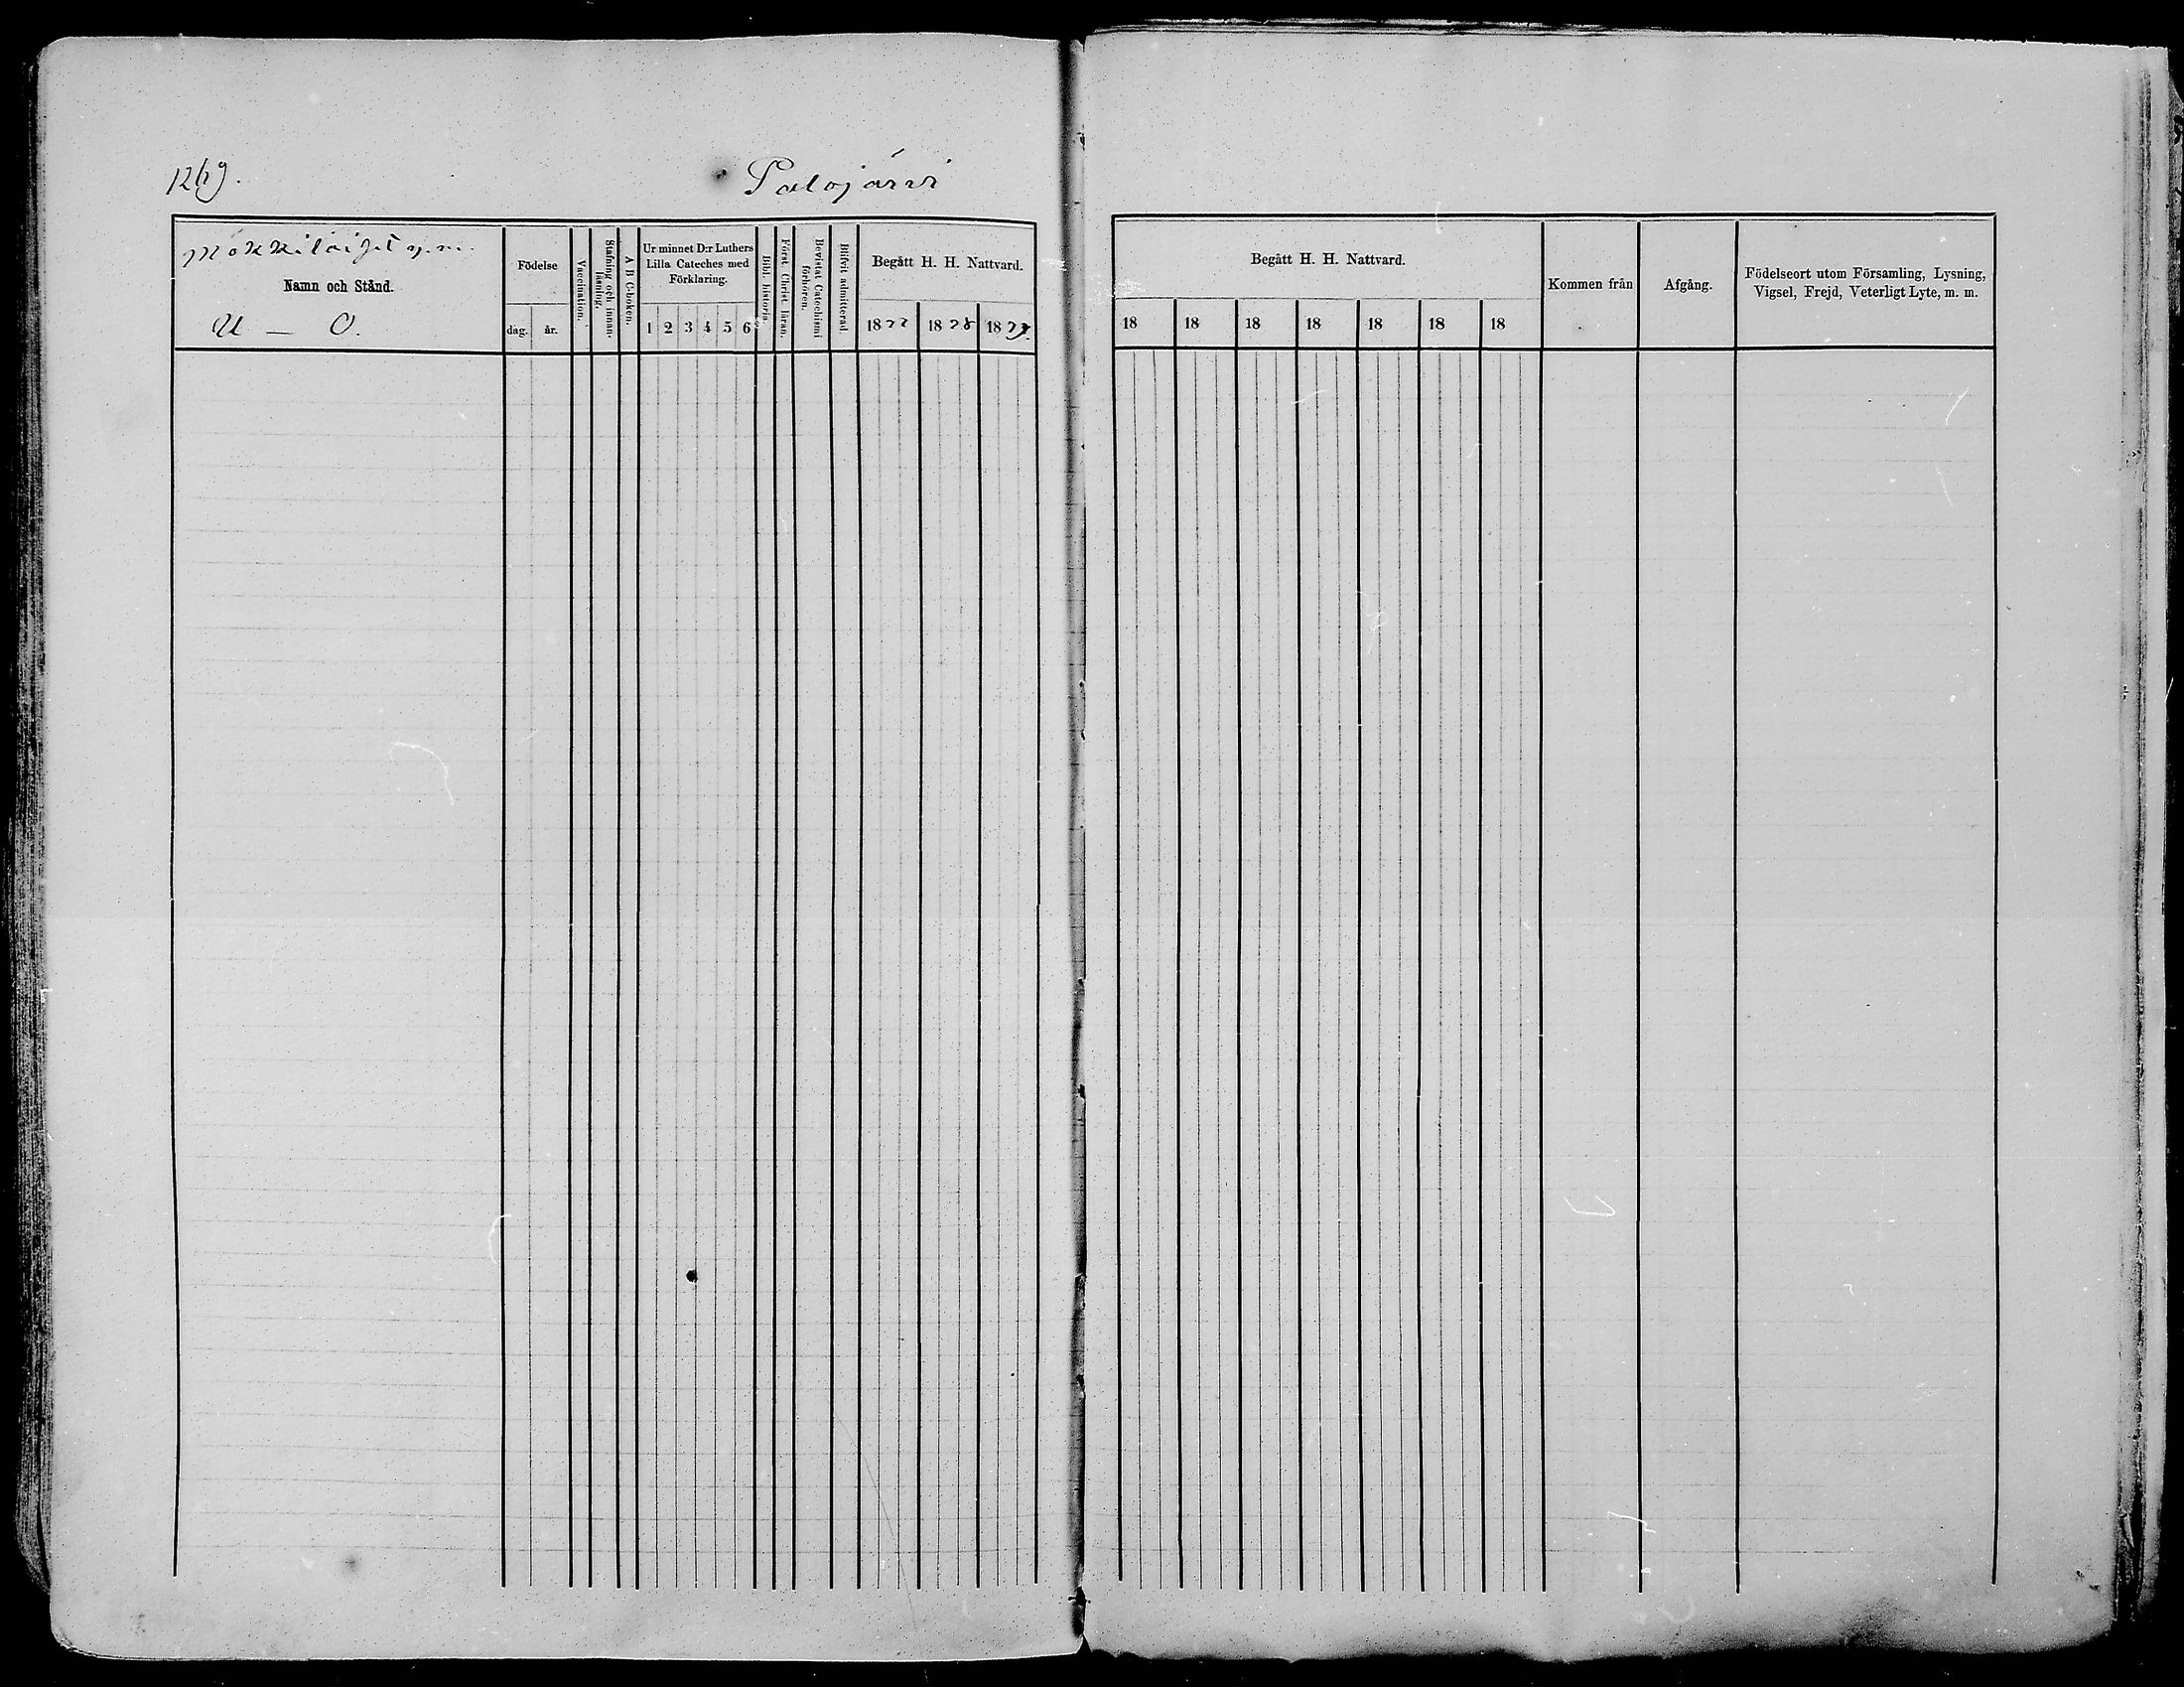 1269.
Palojärvi
Mökkiläiget m.m.
Namn och Stånd.
U — O.
Födelse
dag. år.
Vaccination.
Stafning och innan-
läsning.
A B C-boken.
Ur minnet D:r Luthers
Lilla Cateches med
Förklaring.
1 2 3 4 5 6
Bibl. historia.
Först. Christ. läran.
Bevistat Catechismi
förhören.
Blifvit admitterad.
Begått H. H. Nattvard.
1877 1878 1879.
Begått H. H. Nattvard.
18 18 18 18 18 18 18
Kommen från
Afgång.
Födelseort utom Församling, Lysning,
Vigsel, Frejd, Veterligt Lyte, m. m.